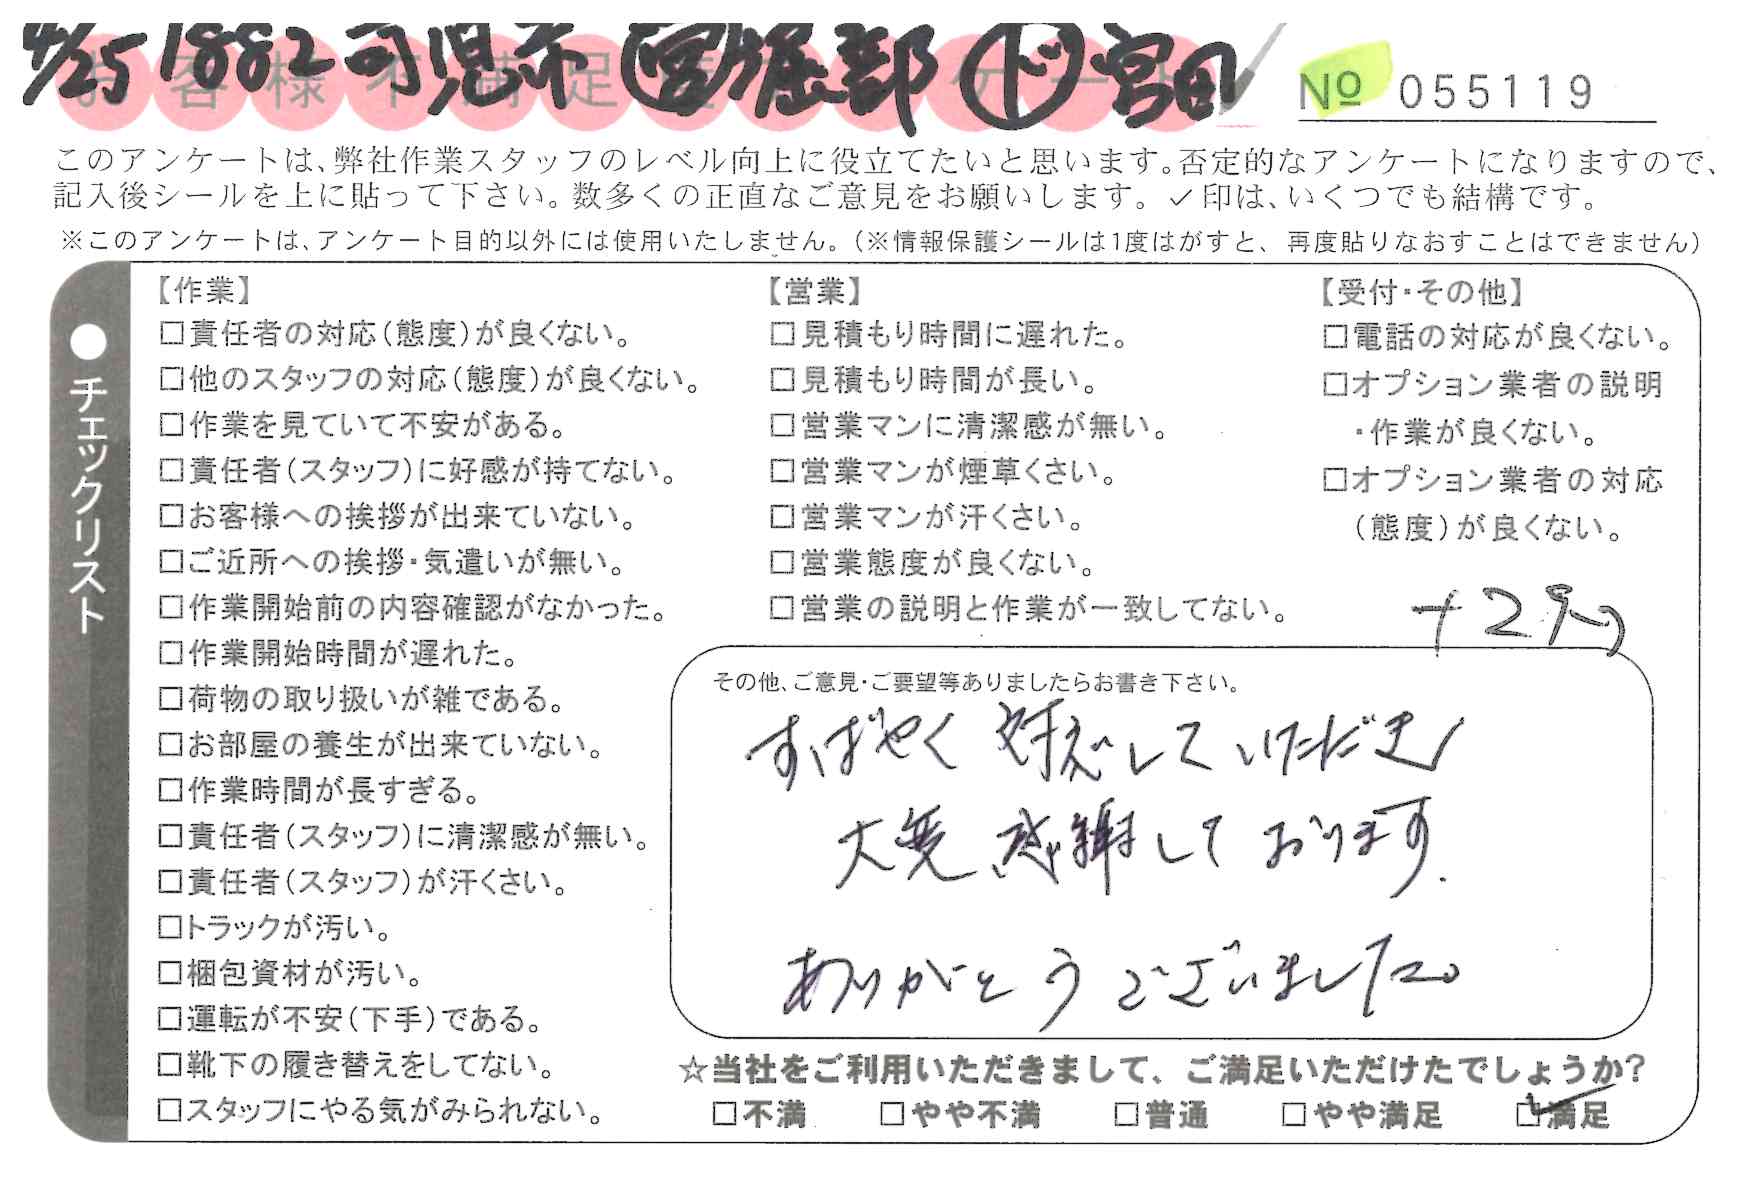 4/25 1882 可児市 営堀部 ド宮田
お客様不満足度アンケート
№ 055119
このアンケートは、弊社作業スタッフのレベル向上に役立てたいと思います。否定的なアンケートになりますので、
記入後シールを上に貼って下さい。数多くの正直なご意見をお願いします。✓印は、いくつでも結構です。
※このアンケートは、アンケート目的以外には使用いたしません。（※情報保護シールは1度はがすと、再度貼りなおすことはできません）
●チェックリスト
【作業】
□責任者の対応（態度）が良くない。
□他のスタッフの対応（態度）が良くない。
□作業を見ていて不安がある。
□責任者（スタッフ）に好感が持てない。
□お客様への挨拶が出来ていない。
□ご近所への挨拶・気遣いが無い。
□作業開始前の内容確認がなかった。
□作業開始時間が遅れた。
□荷物の取り扱いが雑である。
□お部屋の養生が出来ていない。
□作業時間が長すぎる。
□責任者（スタッフ）に清潔感が無い。
□責任者（スタッフ）が汗くさい。
□トラックが汚い。
□梱包資材が汚い。
□運転が不安（下手）である。
□靴下の履き替えをしてない。
□スタッフにやる気がみられない。
【営業】
□見積もり時間に遅れた。
□見積もり時間が長い。
□営業マンに清潔感が無い。
□営業マンが煙草くさい。
□営業マンが汗くさい。
□営業態度が良くない。
□営業の説明と作業が一致してない。
【受付・その他】
□電話の対応が良くない。
□オプション業者の説明
・作業が良くない。
□オプション業者の対応
（態度）が良くない。
その他、ご意見・ご要望等ありましたらお書き下さい。
すばやく対応していただき
大変感謝しております.
ありがとうございました。
☆当社をご利用いただきまして、ご満足いただけたでしょうか？
□不満 □やや不満 □普通 □やや満足 ☑満足